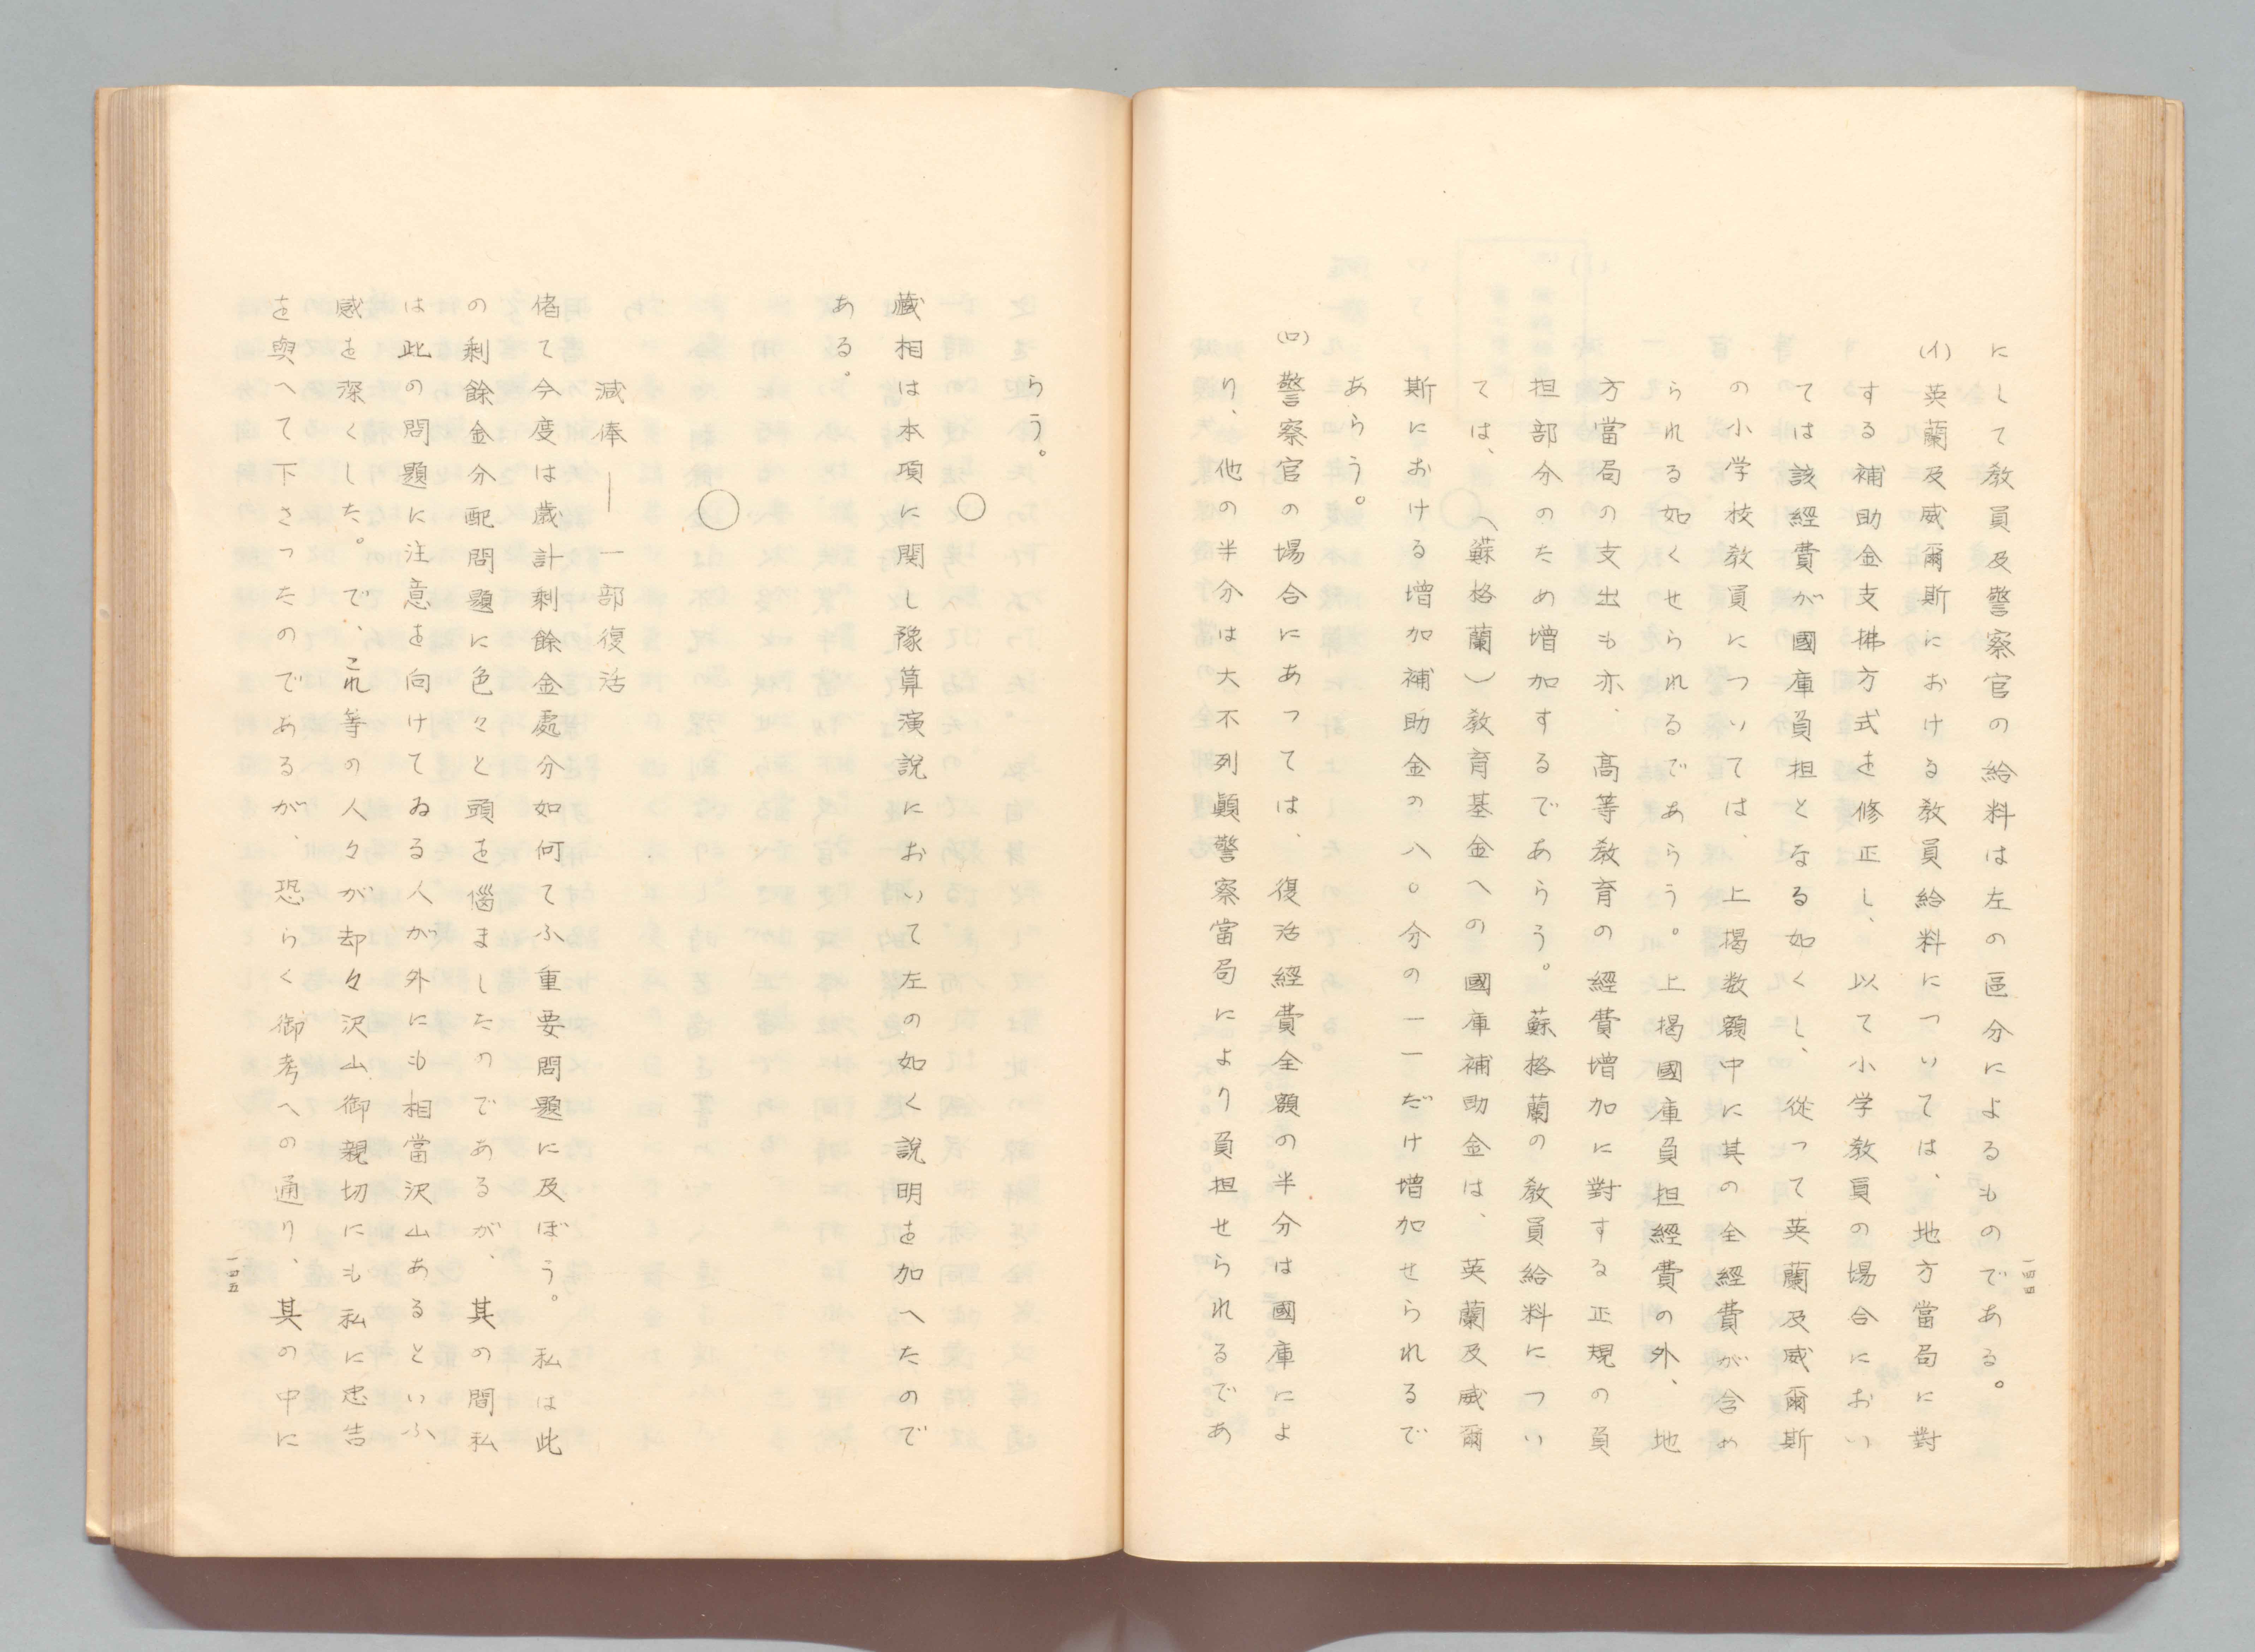 にして教員及警察官の給料は左の區分によるものである。
(イ)英蘭及威爾斯における教員給料については、地方當局に對
する補助金支拂方式を修正し、以て小学教員の場合におい
ては該經費が國庫負担となる如くし、從って英蘭及威爾斯
の小学校教員については、上掲数額中に其の全經費が含め
られる如くせられるであらう。上掲國庫負担經費の外、地
方當局の支出も亦、高等教育の經費増加に對する正規の負
担部分のため増加するであらう。蘇格蘭の教員給料につい
ては、(蘇格蘭)教育基金への國庫補助金は、英蘭及威爾
斯における増加補助金の八〇分の一一だけ増加せられるで
あらう。
(ロ)警察官の場合にあっては、復活經費全額の半分は國庫によ
り、他の半分は大不列顛警察當局により負担せられるであ
一四四
らう。
○
藏相は本項に関し豫算演說において左の如く說明を加へたので
ある。
○
減俸―一部復活
偖て今度は歳計剰餘金處分如何てふ重要問題に及ぼう。私は此
の剰餘金分配問題に色々と頭を惱ましたのであるが、其の間私
は此の問題に注意を向けてゐる人が外にも相當沢山あるといふ
感を深くした。で、これ等の人々が却々沢山御親切にも私に忠告
を與へて下さったのであるが、恐らく御考への通り、其の中に
一四五